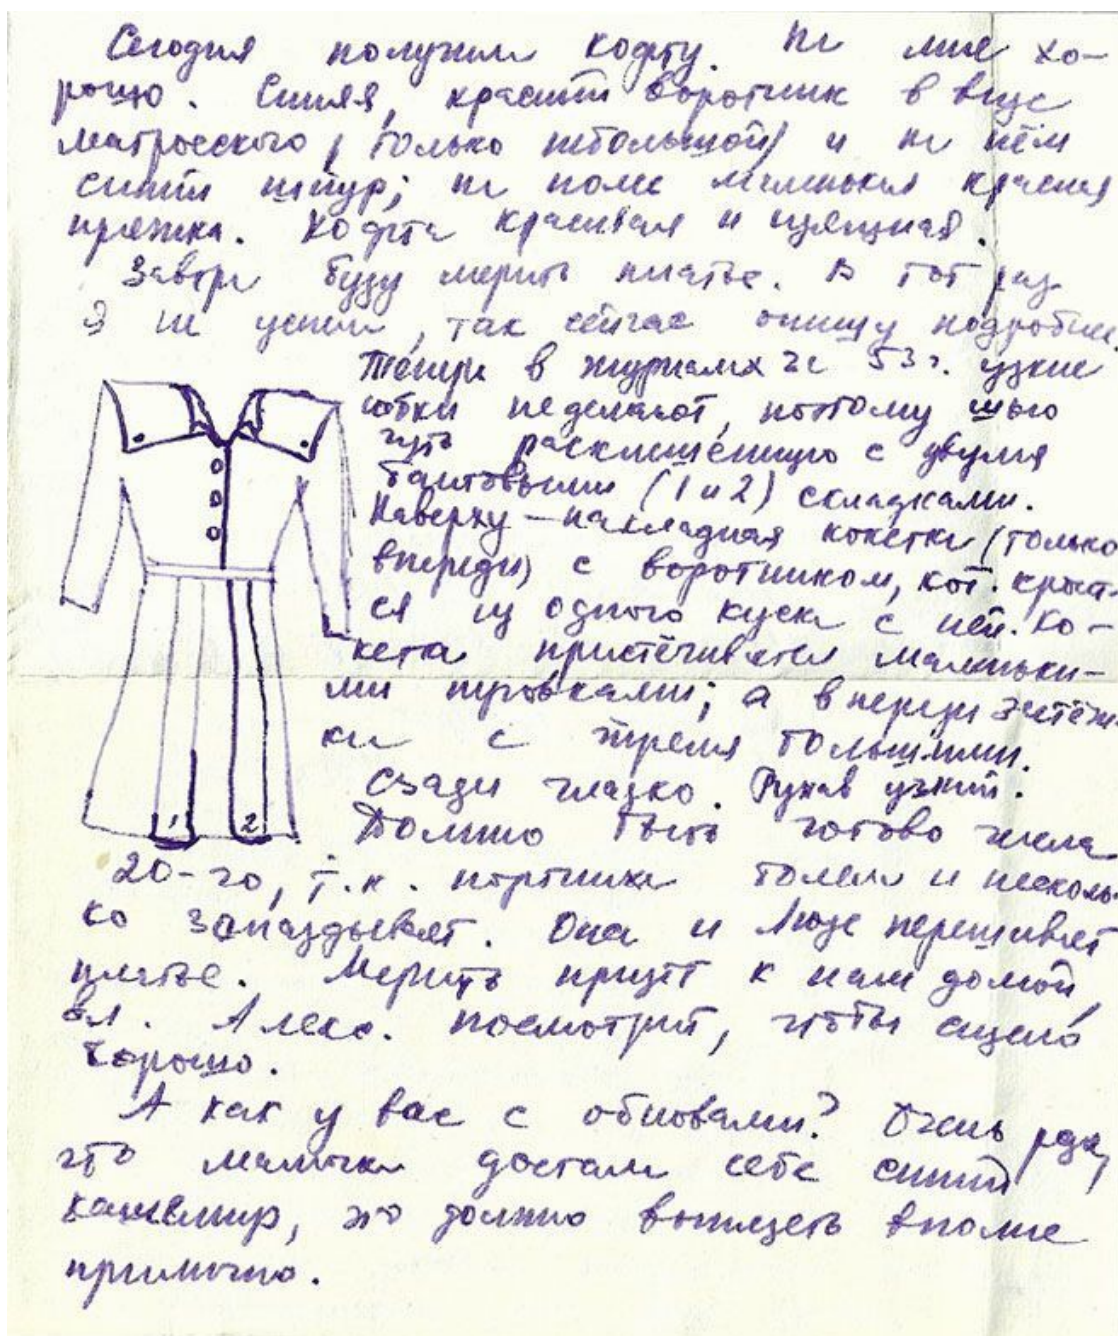 Сегодня получили кофту. На мне хо-
рошо. Синяя, красный воротник в виде
матросского (только небольшой) и на нём
синий шнур; на поясе маленькая красная
пряжка. Кофта красивая и изящная.
Завтра буду мерить платье. В тот раз
я не успела, так сейчас опишу подробнее.
Теперь в журналах за 53 г. узкие
юбки не делают, поэтому шью
чуть расклешённую с двумя
бантовыми (1 и 2) складками.
Наверху – накладная кокетка (только
впереди) с воротником, кот. кроит-
ся из одного куска с ней. Ко-
кетка пристёгивается маленьки-
ми пуговками; а впереди застёж
ка с тремя большими.
Сзади гладко. Рукав узкий.
Должно быть готово числа
1 2
20-го, т.к. портниха болела и несколь-
ко запаздывает. Она и Люде перешивает
платье. Мерить придёт к нам домой,
Ал. Алекс. посмотрит, чтобы сидело
хорошо.
А как у вас с обновами? Очень рада,
что мамочка достала себе синий
кашемир, это должно выглядеть вполне
прилично.